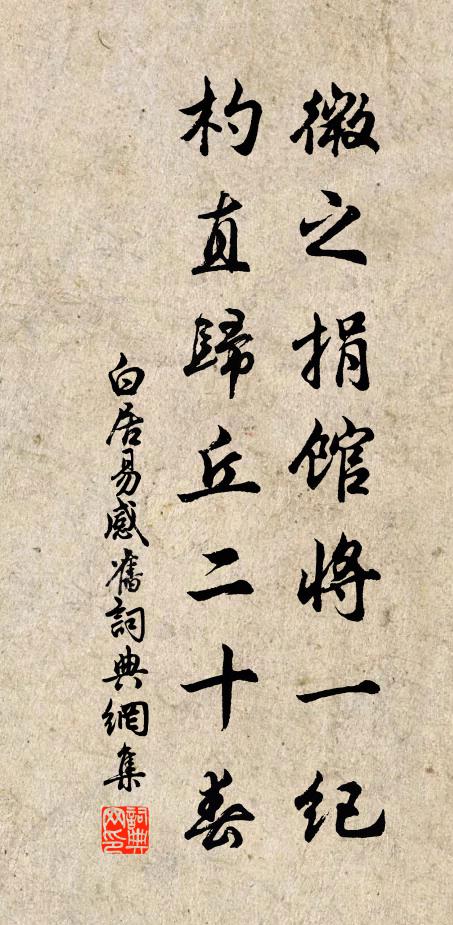 微之捐館將一紀
杓直歸丘二十春
白居易感舊詞典網集
詞典
网印